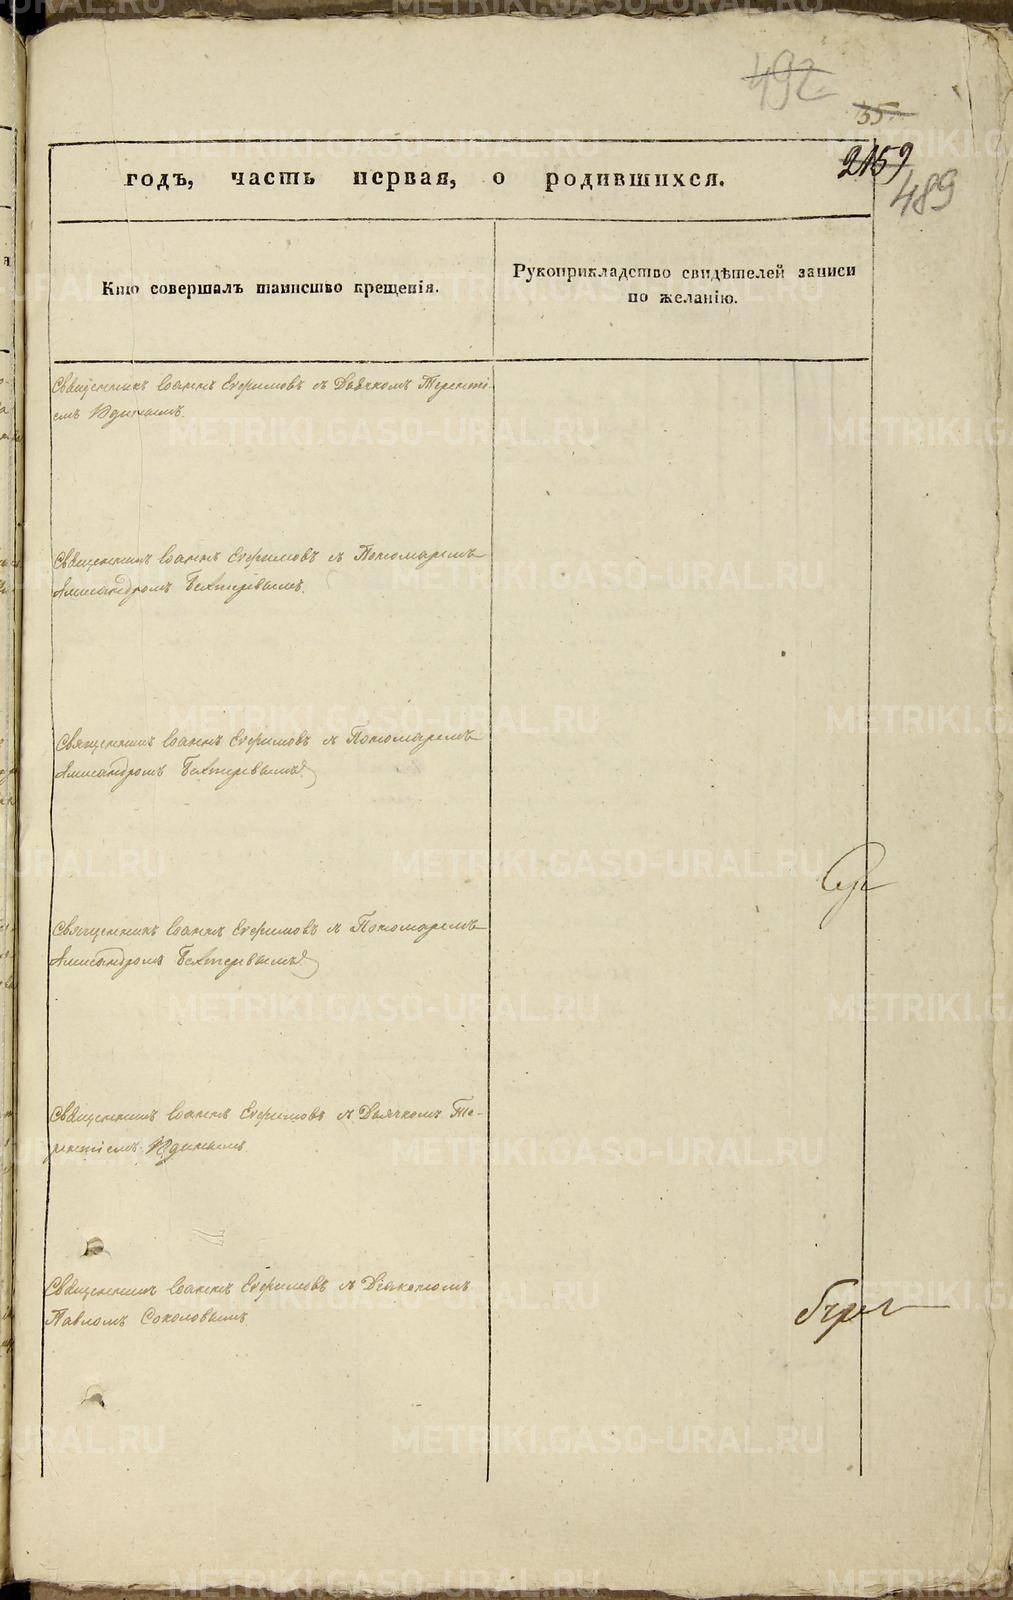 492
35
2159
489
годъ, часть первая, о родившихся.
Кто совершалъ таинство крещенія.
Рукоприкладство свидѣтелей записи
по желанію.
Священникъ Іоаннъ Ефимовъ с Дьячкомъ Теренті-
емъ Юдинымъ.
Священникъ Іоаннъ Ефимовъ с Пономаремъ
Александромъ Бехтеревымъ.
Священникъ Іоаннъ Ефимовъ с Пономаремъ
Александромъ Бехтеревымъ
Священникъ Іоаннъ Ефимовъ с Пономаремъ
Александромъ Бехтеревымъ
Священникъ Іоаннъ Ефимовъ с Дьячкомъ Те-
рентіемъ Юдинымъ
Священникъ Іоаннъ Ефимовъ с Діакономъ
Павломъ Соколовымъ
METRIKI.GASO-URAL.RU